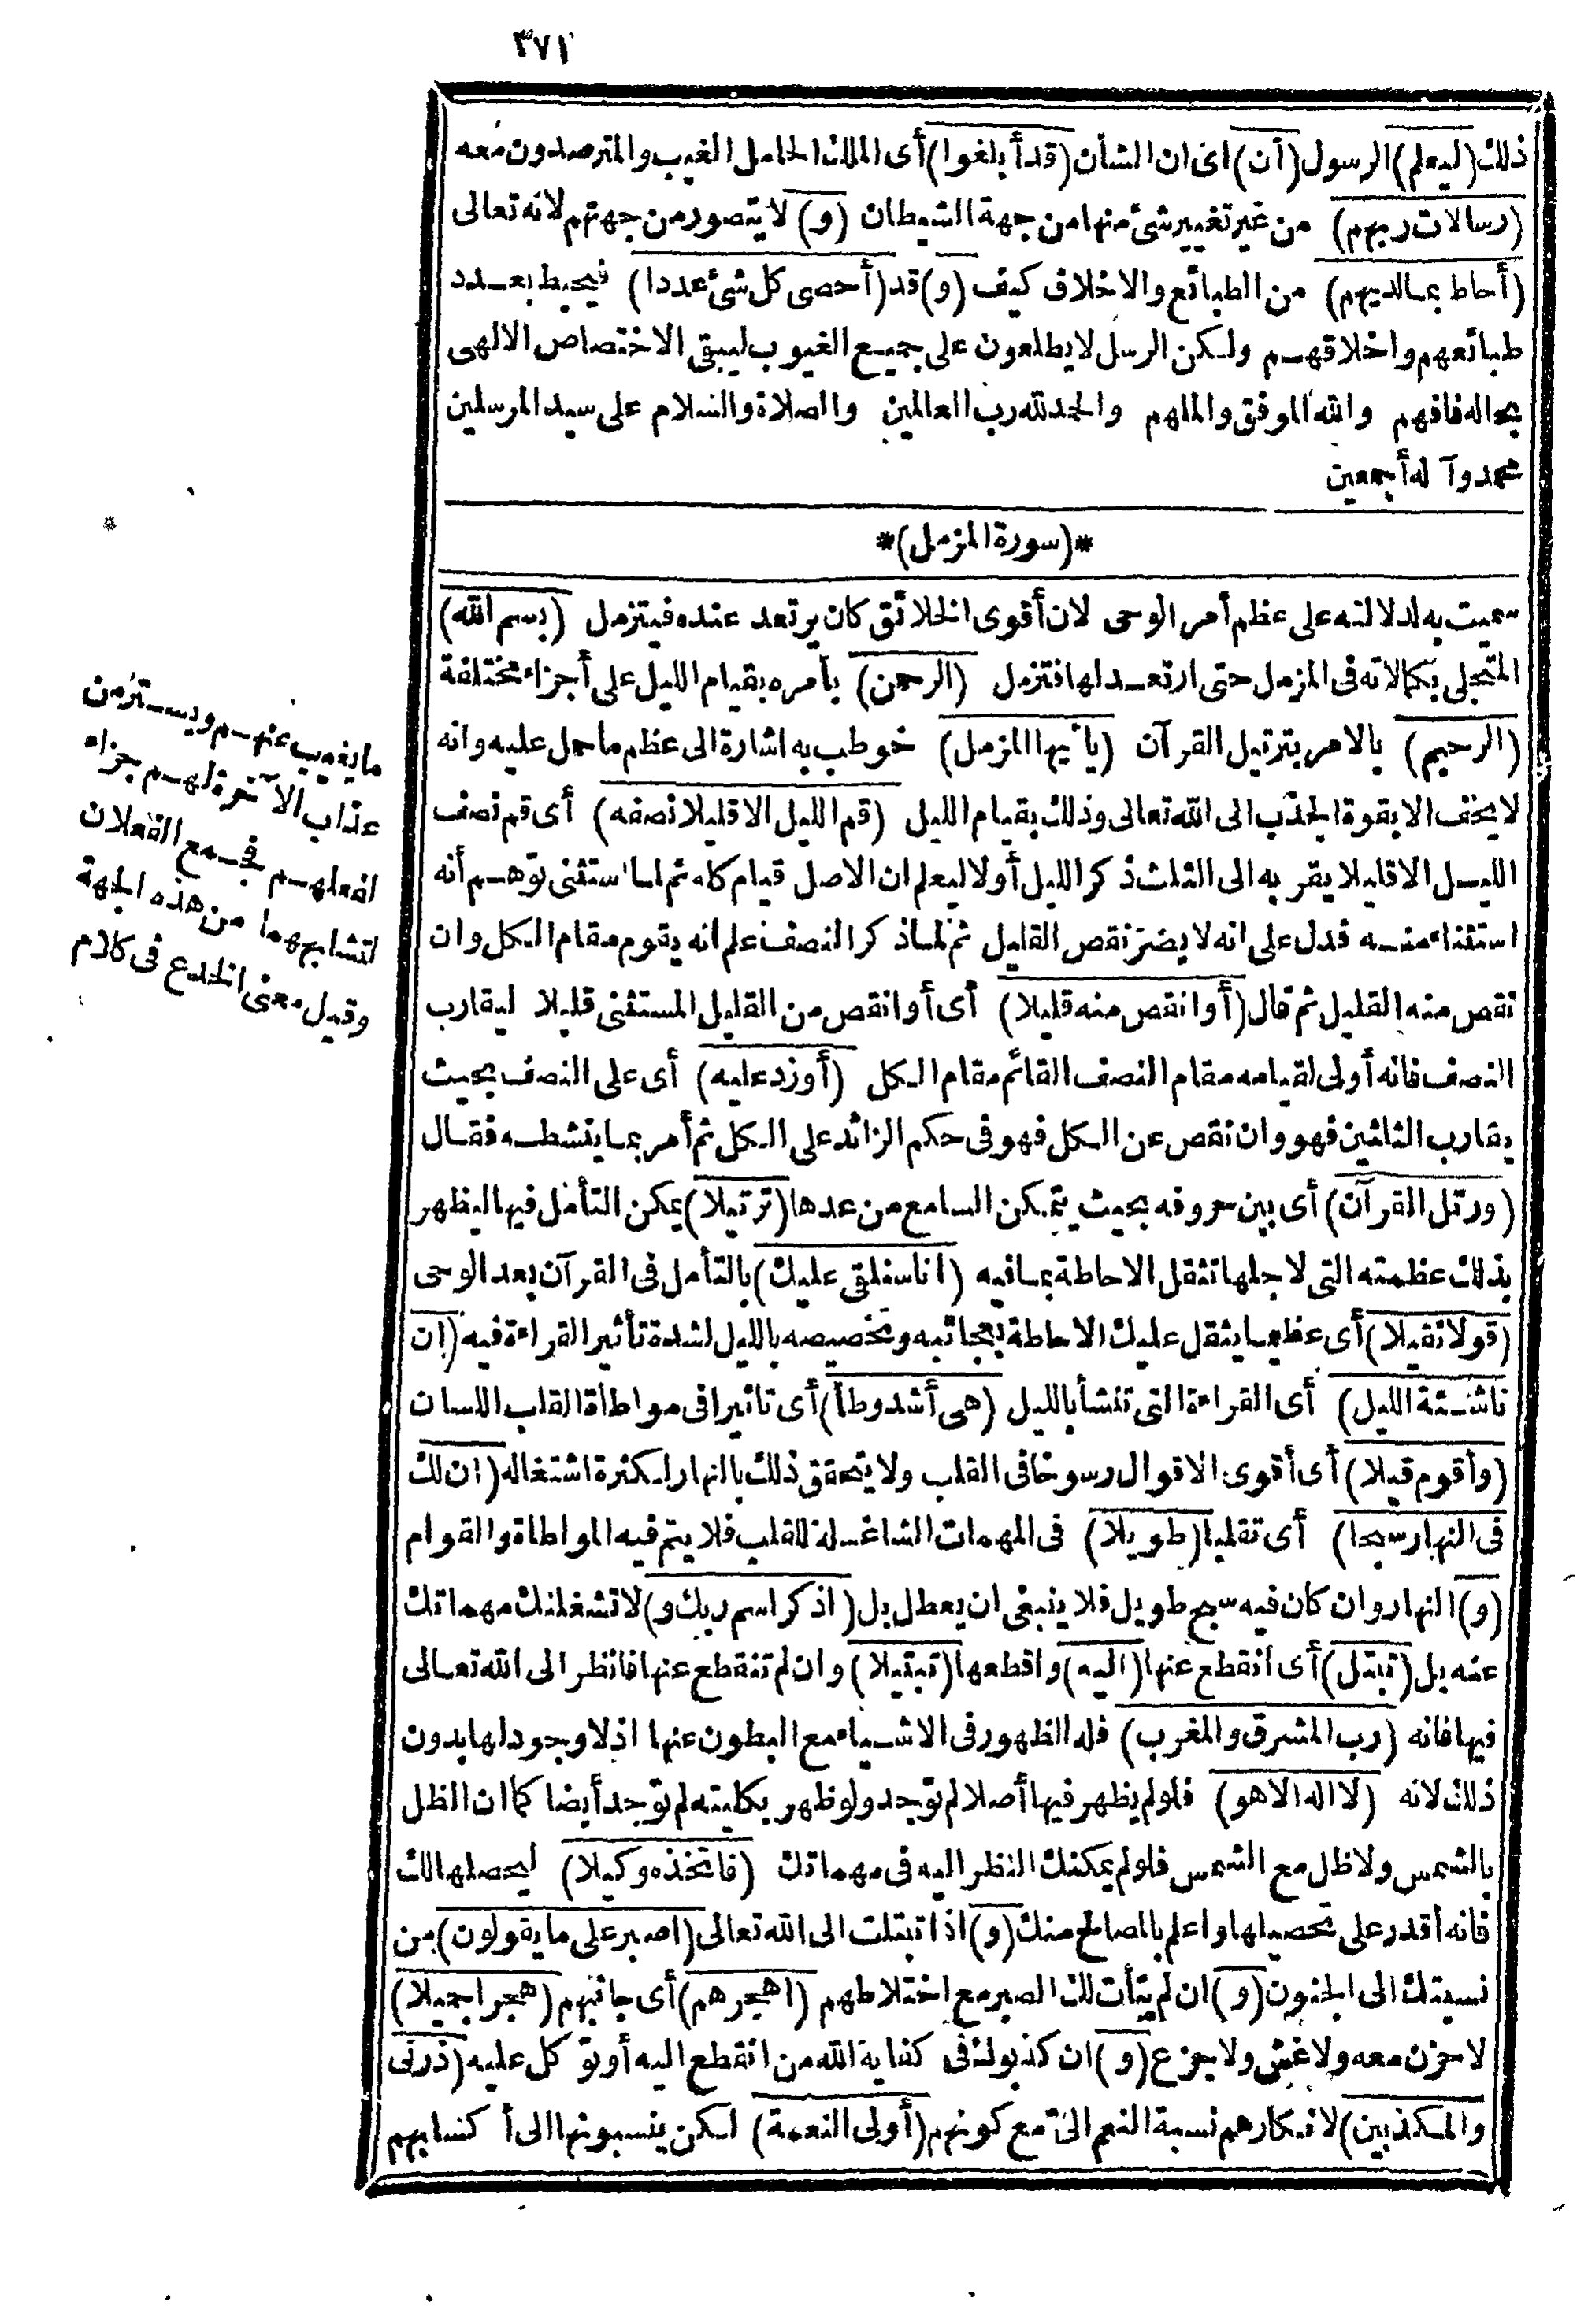 ٣٧١
ذلك (ليعلم) الرسول (أن) اى ان الشأن (قد أبلغوا) أى الملك الحامل الغيب والمترصدون معه
(رسالات ربهم) من غير تغيير شئ منها من جهة الشيطان (و) لا يتصور من جهتهم لانه تعالى
(أحاط بما لديهم) من الطبائع والاخلاق كيف (و) قد (أحصى كل شئ عددا) فيحيط بعدد
طبائعهم واخلاقهم ولكن الرسل لا يطلعون على جميع الغيوب ليبقى الاختصاص الالهى
بحاله فافهم والله الموفق والملهم والحمد لله رب العالمين والصلاة والسلام على سيد المرسلين
محمد وآله أجمعين
*(سورة المزمل)*
سميت به لدلالته على عظم أمر الوحى لان أقوى الخلائق كان يرتعد عنده فيتزمل (بسم الله)
المتجلى بكمالاته فى المزمل حتى ارتعد لها فتزمل (الرحمن) بأمره بقيام الليل على أجزاء مختلفة
(الرحيم) بالامر بترتيل القرآن (يا أيها المزمل) خوطب به اشارة الى عظم ما حمل عليه وانه
لا يخف الا بقوة الجذب الى الله تعالى وذلك بقيام الليل (قم الليل الا قليلا نصفه) أى قم نصف
الليل الا قليلا يقربه الى الثلث ذكر الليل أولا ليعلم ان الاصل قيام كله ثم لما استثنى توهم أنه
استثناء منه فدل على انه لا يضر نقص القليل ثم لما ذكر النصف علم انه يقوم مقام الكل وان
نقص منه القليل ثم قال (أو انقص منه قليلا) أى أو انقص من القليل المستثنى قليلا ليقارب
النصف فانه أولى لقيامه مقام النصف القائم مقام الكل (أو زد عليه) أى على النصف بحيث
يقارب الثلثين فهو وان نقص عن الكل فهو فى حكم الزائد على الكل ثم أمر بما ينشطه فقال
(ورتل القرآن) أى بين حروفه بحيث يتمكن السامع من عدها (ترتيلا) يمكن التأمل فيها ليظهر
بذلك عظمته التى لاجلها تثقل الاحاطة بما فيه (انا سنلقى عليك) بالتأمل فى القرآن بعد الوحى
(قولا ثقيلا) أى عظيما يثقل عليك الاحاطة بعجائبه وتخصيصه بالليل لشدة تأثير القراءة فيه (ان
ناشئة الليل) أى القراءة التى تنشأ بالليل (هى أشد وطأ) أى تاثيرا فى مواطأة القلب اللسان
(وأقوم قيلا) أى أقوى الاقوال رسوخا فى القلب ولا يتحقق ذلك بالنهار لكثرة اشتغاله (ان لك
فى النهار سبحا) أى تقلبا (طويلا) فى المهمات الشاغلة للقلب فلا يتم فيه المواطاة والقوام
(و) النهار وان كان فيه سبح طويل فلا ينبغى ان يعطل بل (اذكر اسم ربك و) لا تشغلنك مهماتك
عنه بل (تبتل) أى انقطع عنها (اليه) واقطعها (تبتيلا) وان لم تنقطع عنها فانظر الى الله تعالى
فيها فانه (رب المشرق والمغرب) فله الظهور فى الاشياء مع البطون عنها اذ لا وجود لها بدون
ذلك لانه (لا اله الا هو) فلو لم يظهر فيها أصلا لم توجد ولو ظهر بكليته لم توجد أيضا كما ان الظل
بالشمس ولا ظل مع الشمس فلو لم يمكنك النظر اليه فى مهماتك (فاتخذه وكيلا) ليحصلها لك
فانه أقدر على تحصيلها واعلم بالمصالح منك (و) اذا تبتلت الى الله تعالى (اصبر على ما يقولون) من
نسبتك الى الجنون (و) ان لم يتأت لك الصبر مع اختلاطهم (اهجرهم) أى جانبهم (هجرا جميلا)
لا حزن معه ولا غش ولا جزع (و) ان كذبوك فى كفاية الله من انقطع اليه أو توكل عليه (ذرنى
والمكذبين) لانكارهم نسبة النعم الى مع كونهم (أولى النعمة) لكن ينسبونها الى أكسابهم
ما يغيب عنهم ويستر من
عذاب الآخرة لهم جزاء
لفعلهم فجمع الفعلان
لتشابههما من هذه الجهة
وقيل معنى الخدع فى كلام